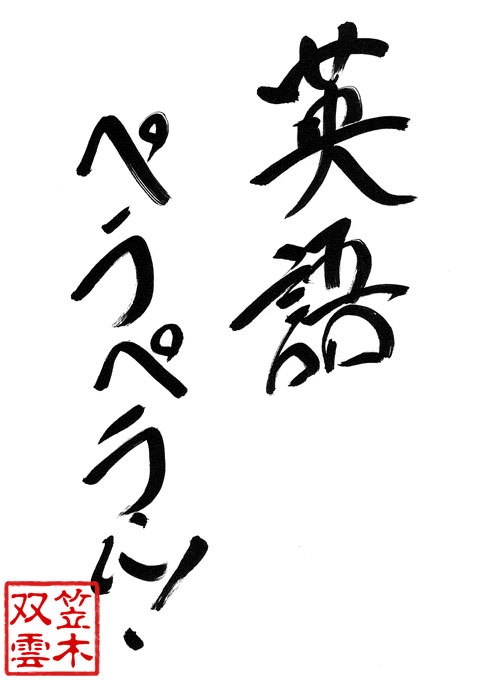 英語
ペラペラに!
笠木
双雲